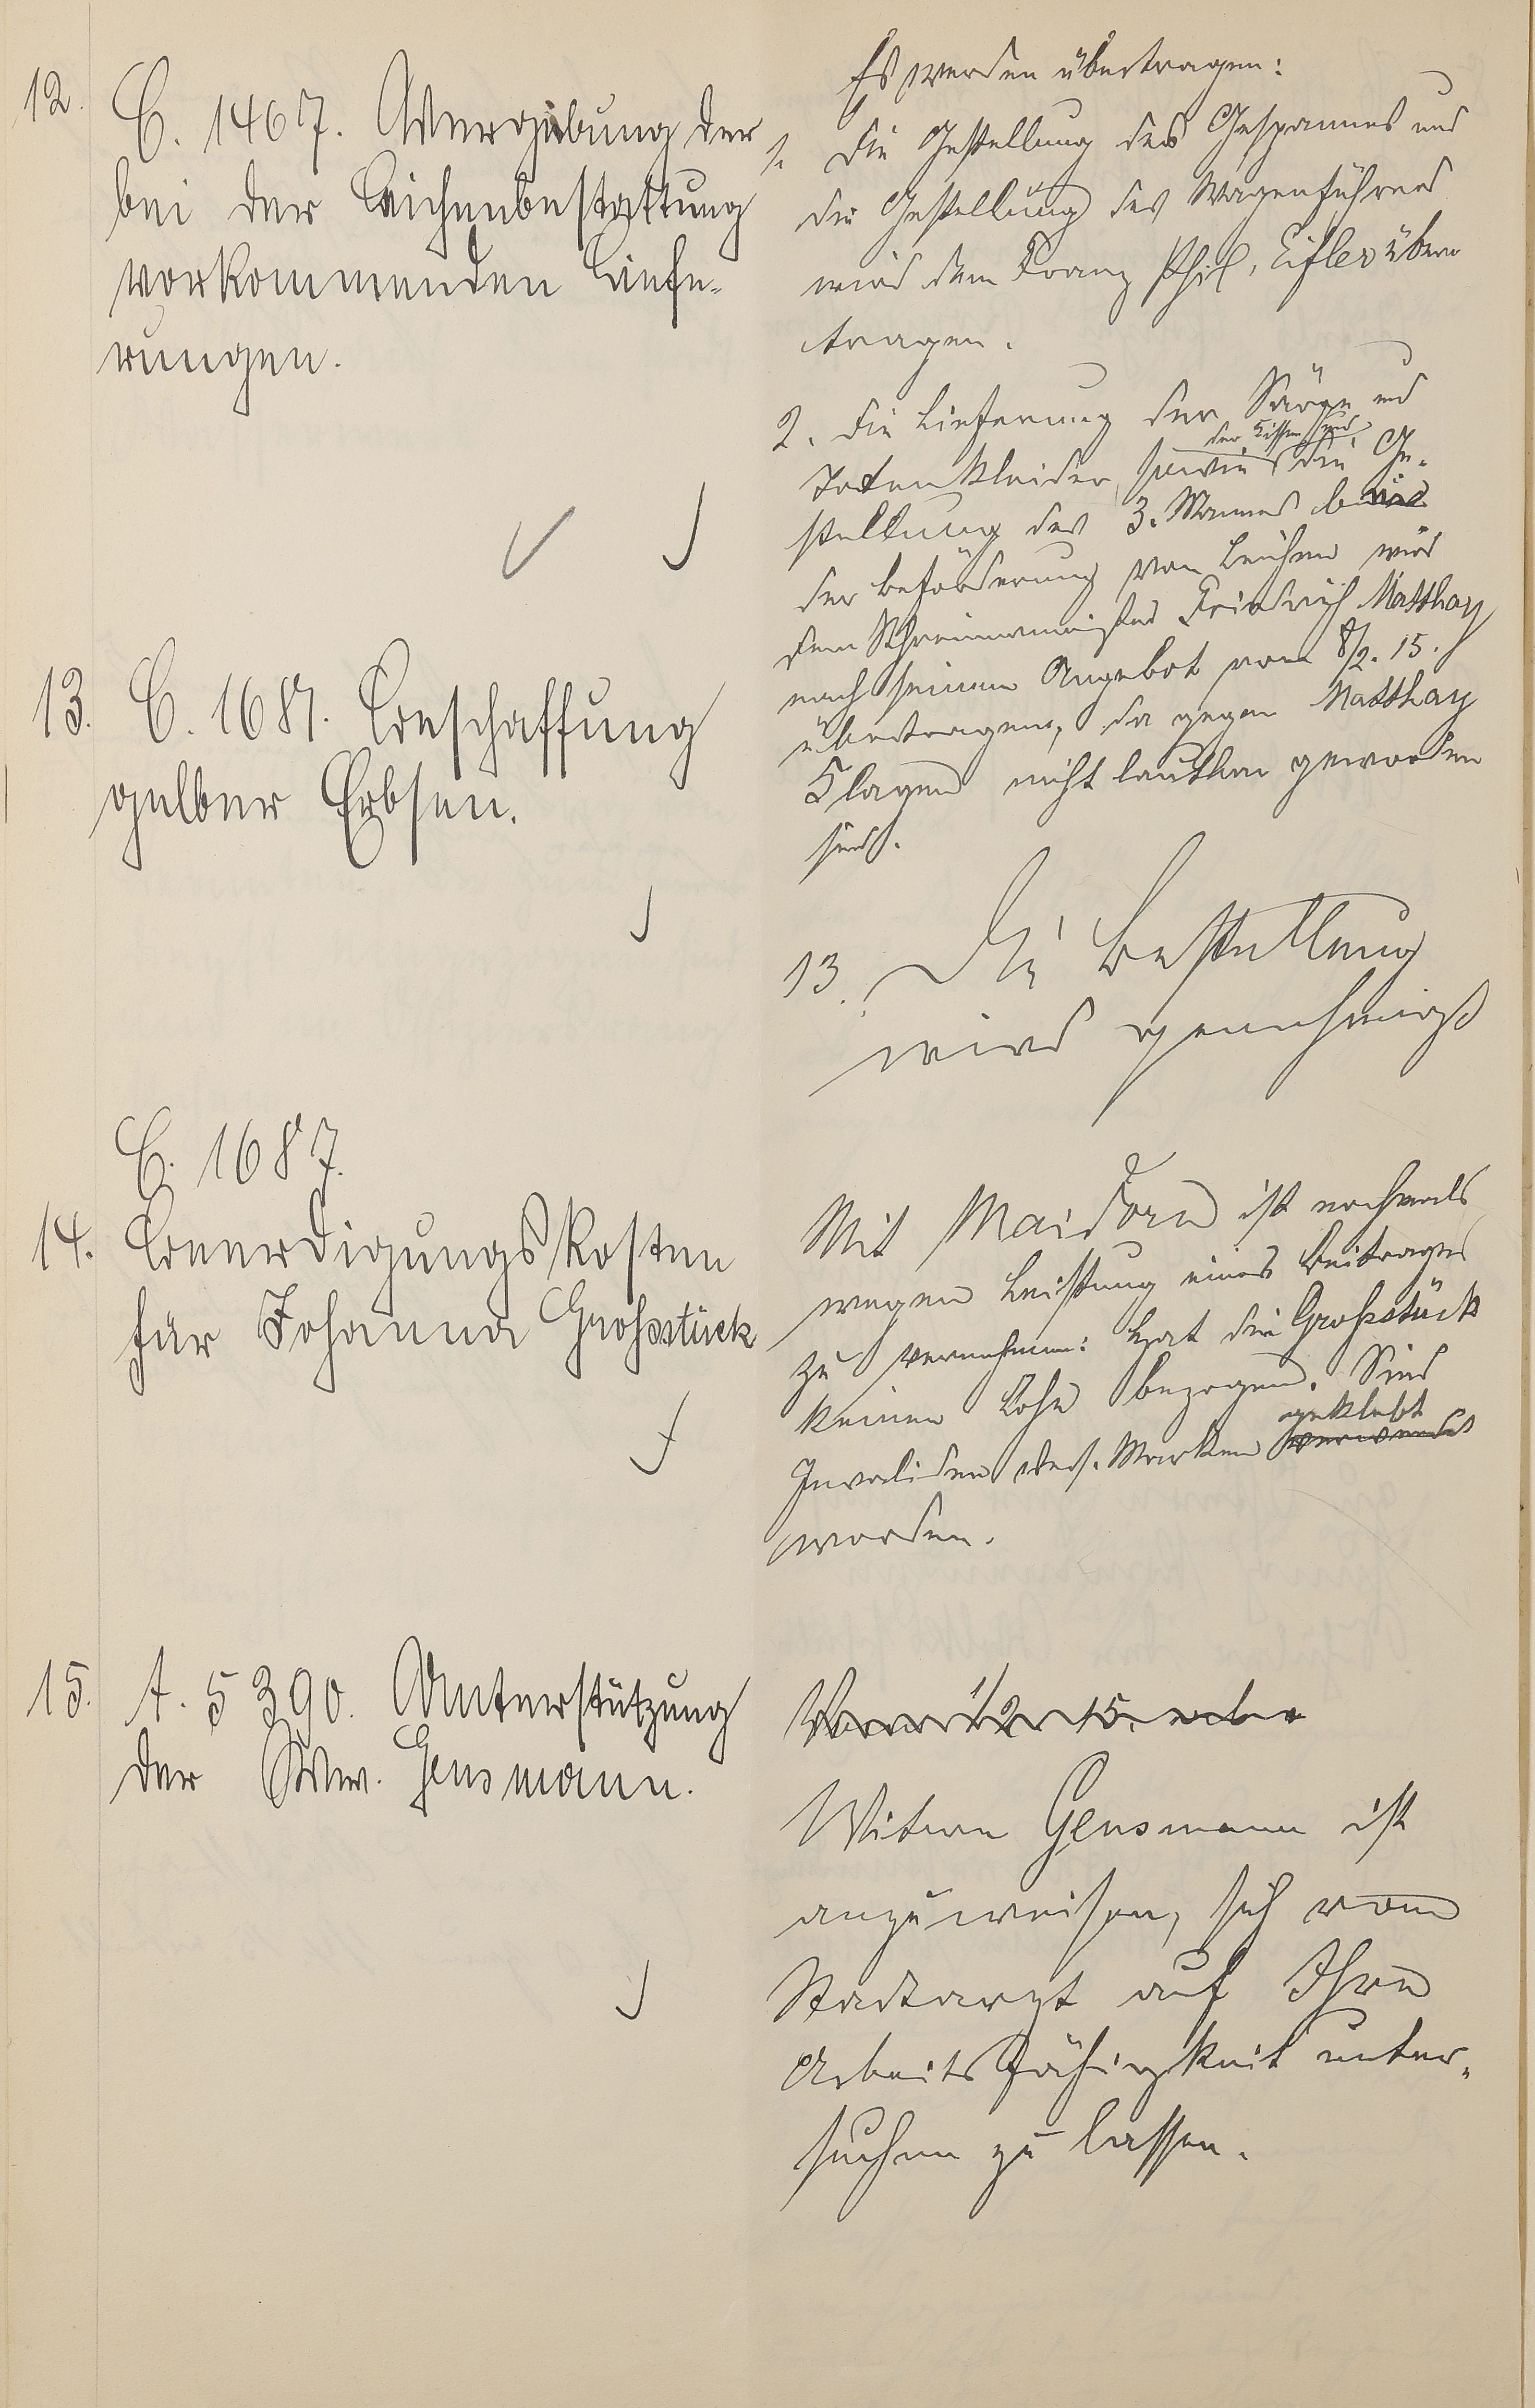 12.
C. 1467. Vergebung der
bei der Leichenbestattung
vorkommenden Liefe-
rungen.
Es werden übertragen:
1. Die Gestellung des Gespannes und
die Gestellung des Wagenführers
wird dem Franz Phil. Eifler über
tragen.
2. Die Lieferung der Särge und
der Kissen und
Totenkleider, sowie die Ge-
stellung des 3. Mannes bei
der Beförderung von Leichen wird
dem Schreinermeister Friedrich Matthay
nach seinem Angebot vom 8/2. 15.
übertragen, da gegen Matthay
Klagen nicht lautbar geworden
sind.
13. C. 1687. Beschaffung
gelber Erbsen.
13. Die Bestellung
wird genehmigt
C. 1687.
14. Beerdigungskosten
für Johanna Grossstück
Mit Maidorn ist nochmals
wegen Leistung eines Beitrages
zu vernehmen: Hat die Großstück
keinen Lohn bezogen. Sind
geklebt
Invaliden vers. Marken verwendet
worden.
15. A. 5390. Unterstützung
der Ww. Gensmann.
Vom 1/2 15. ab
Witwe Gensmann ist
anzuweisen, sich vom
Stadtarzt auf Ihre
Arbeitsfähigkeit unter-
suchen zu lassen.